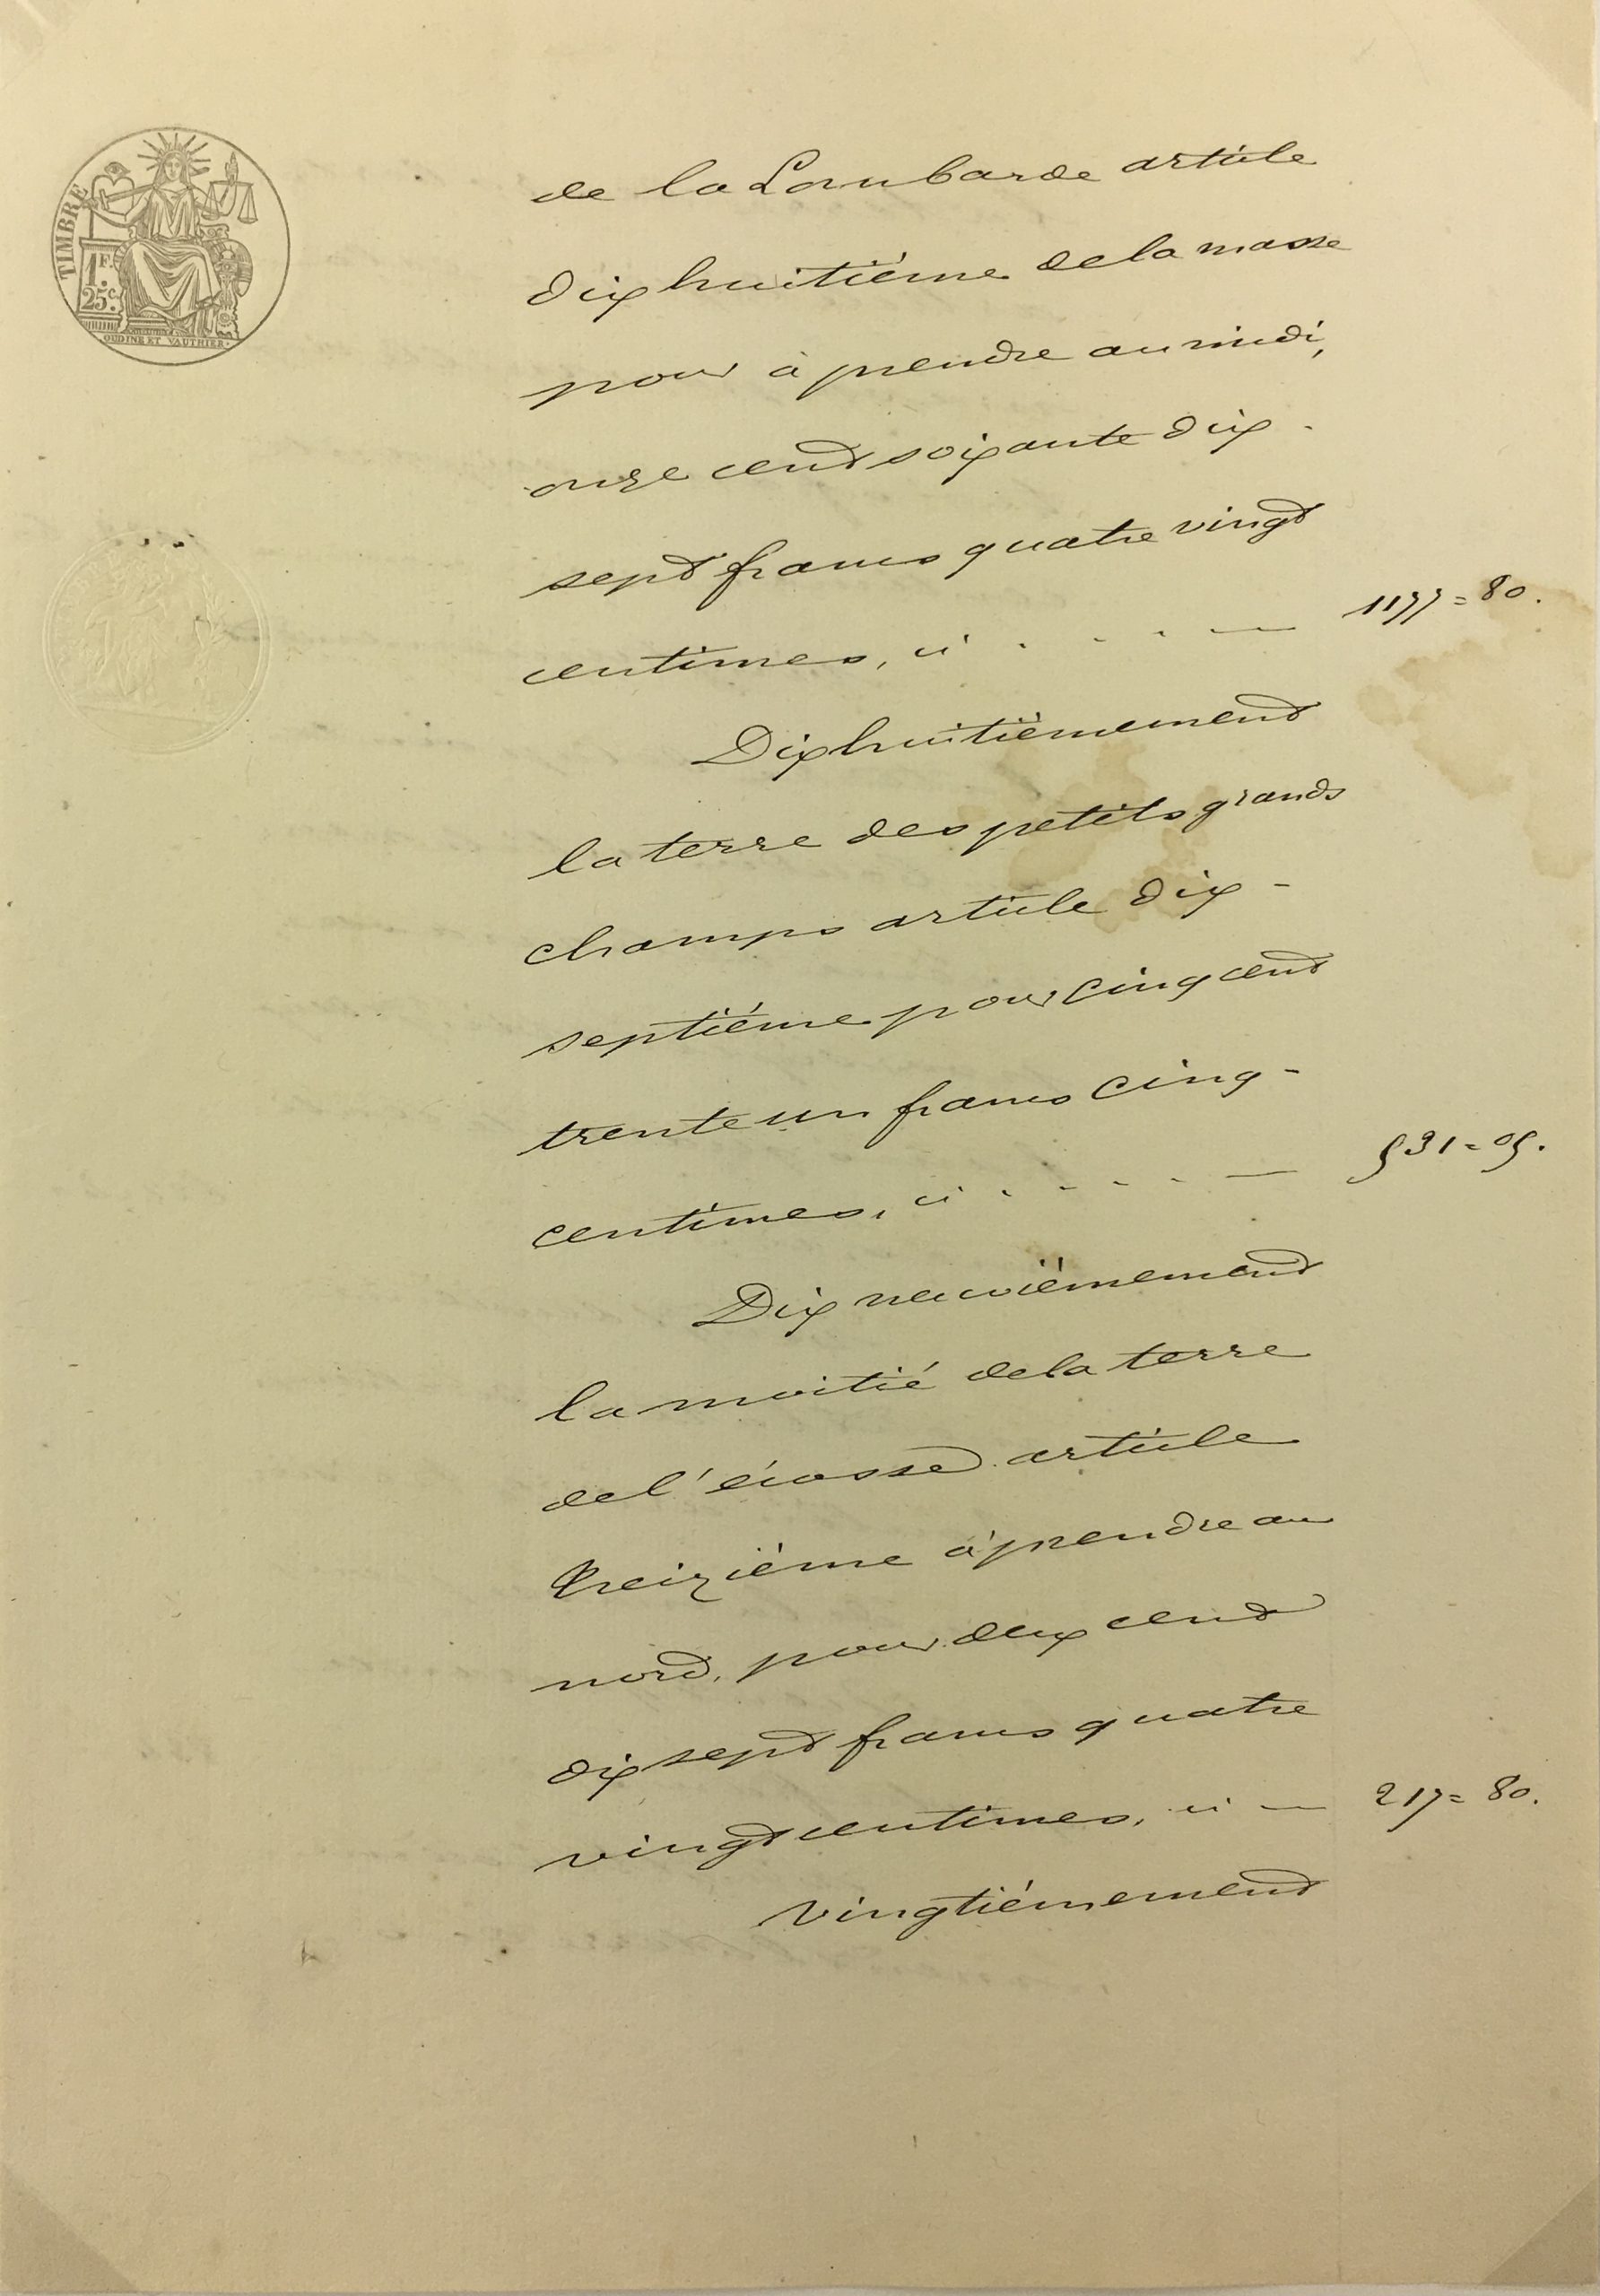 TIMBRE
1F.
25c.
OUDINE ET VAUTHIER.
de la Lombarde article
dix huitième de la masse
pour à prendre au midi,
onze cent soixante dix -
sept francs quatre vingt
centimes, ci - - - — 1177 = 80.
Dix huitièmement
la terre des petits grands
champs article dix -
septième pour cinq cent
trente un francs cinq -
centimes, ci - - - - — 531 = 05.
Dix neuvièmement
la moitié de la terre
de l'écosse article
treizième à prendre au
nord, pour deux cent
dix sept francs quatre
vingt centimes, ci — 217 = 80.
Vingtièmement